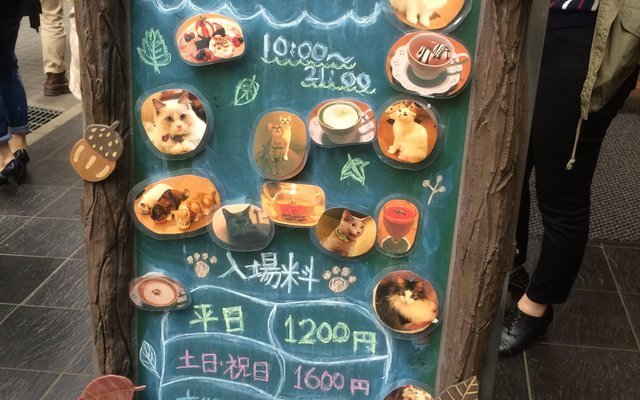 10:00~
21:00
入場料
平日 1200円
土日・祝日 1600円